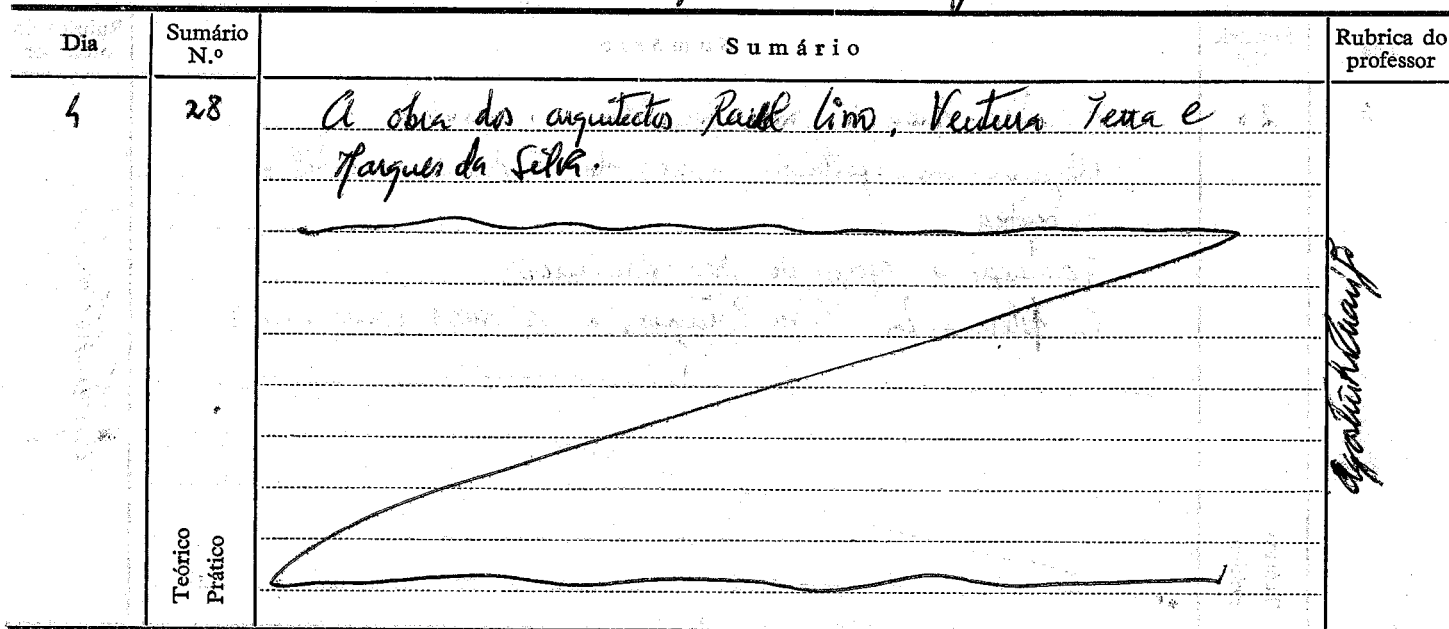 Dia
Sumário N.º
Sumário
Rubrica do professor
4
28
A obra dos arquitectos Raul Lino, Ventura Terra e
Marques da Silva.
Teórico
Prático